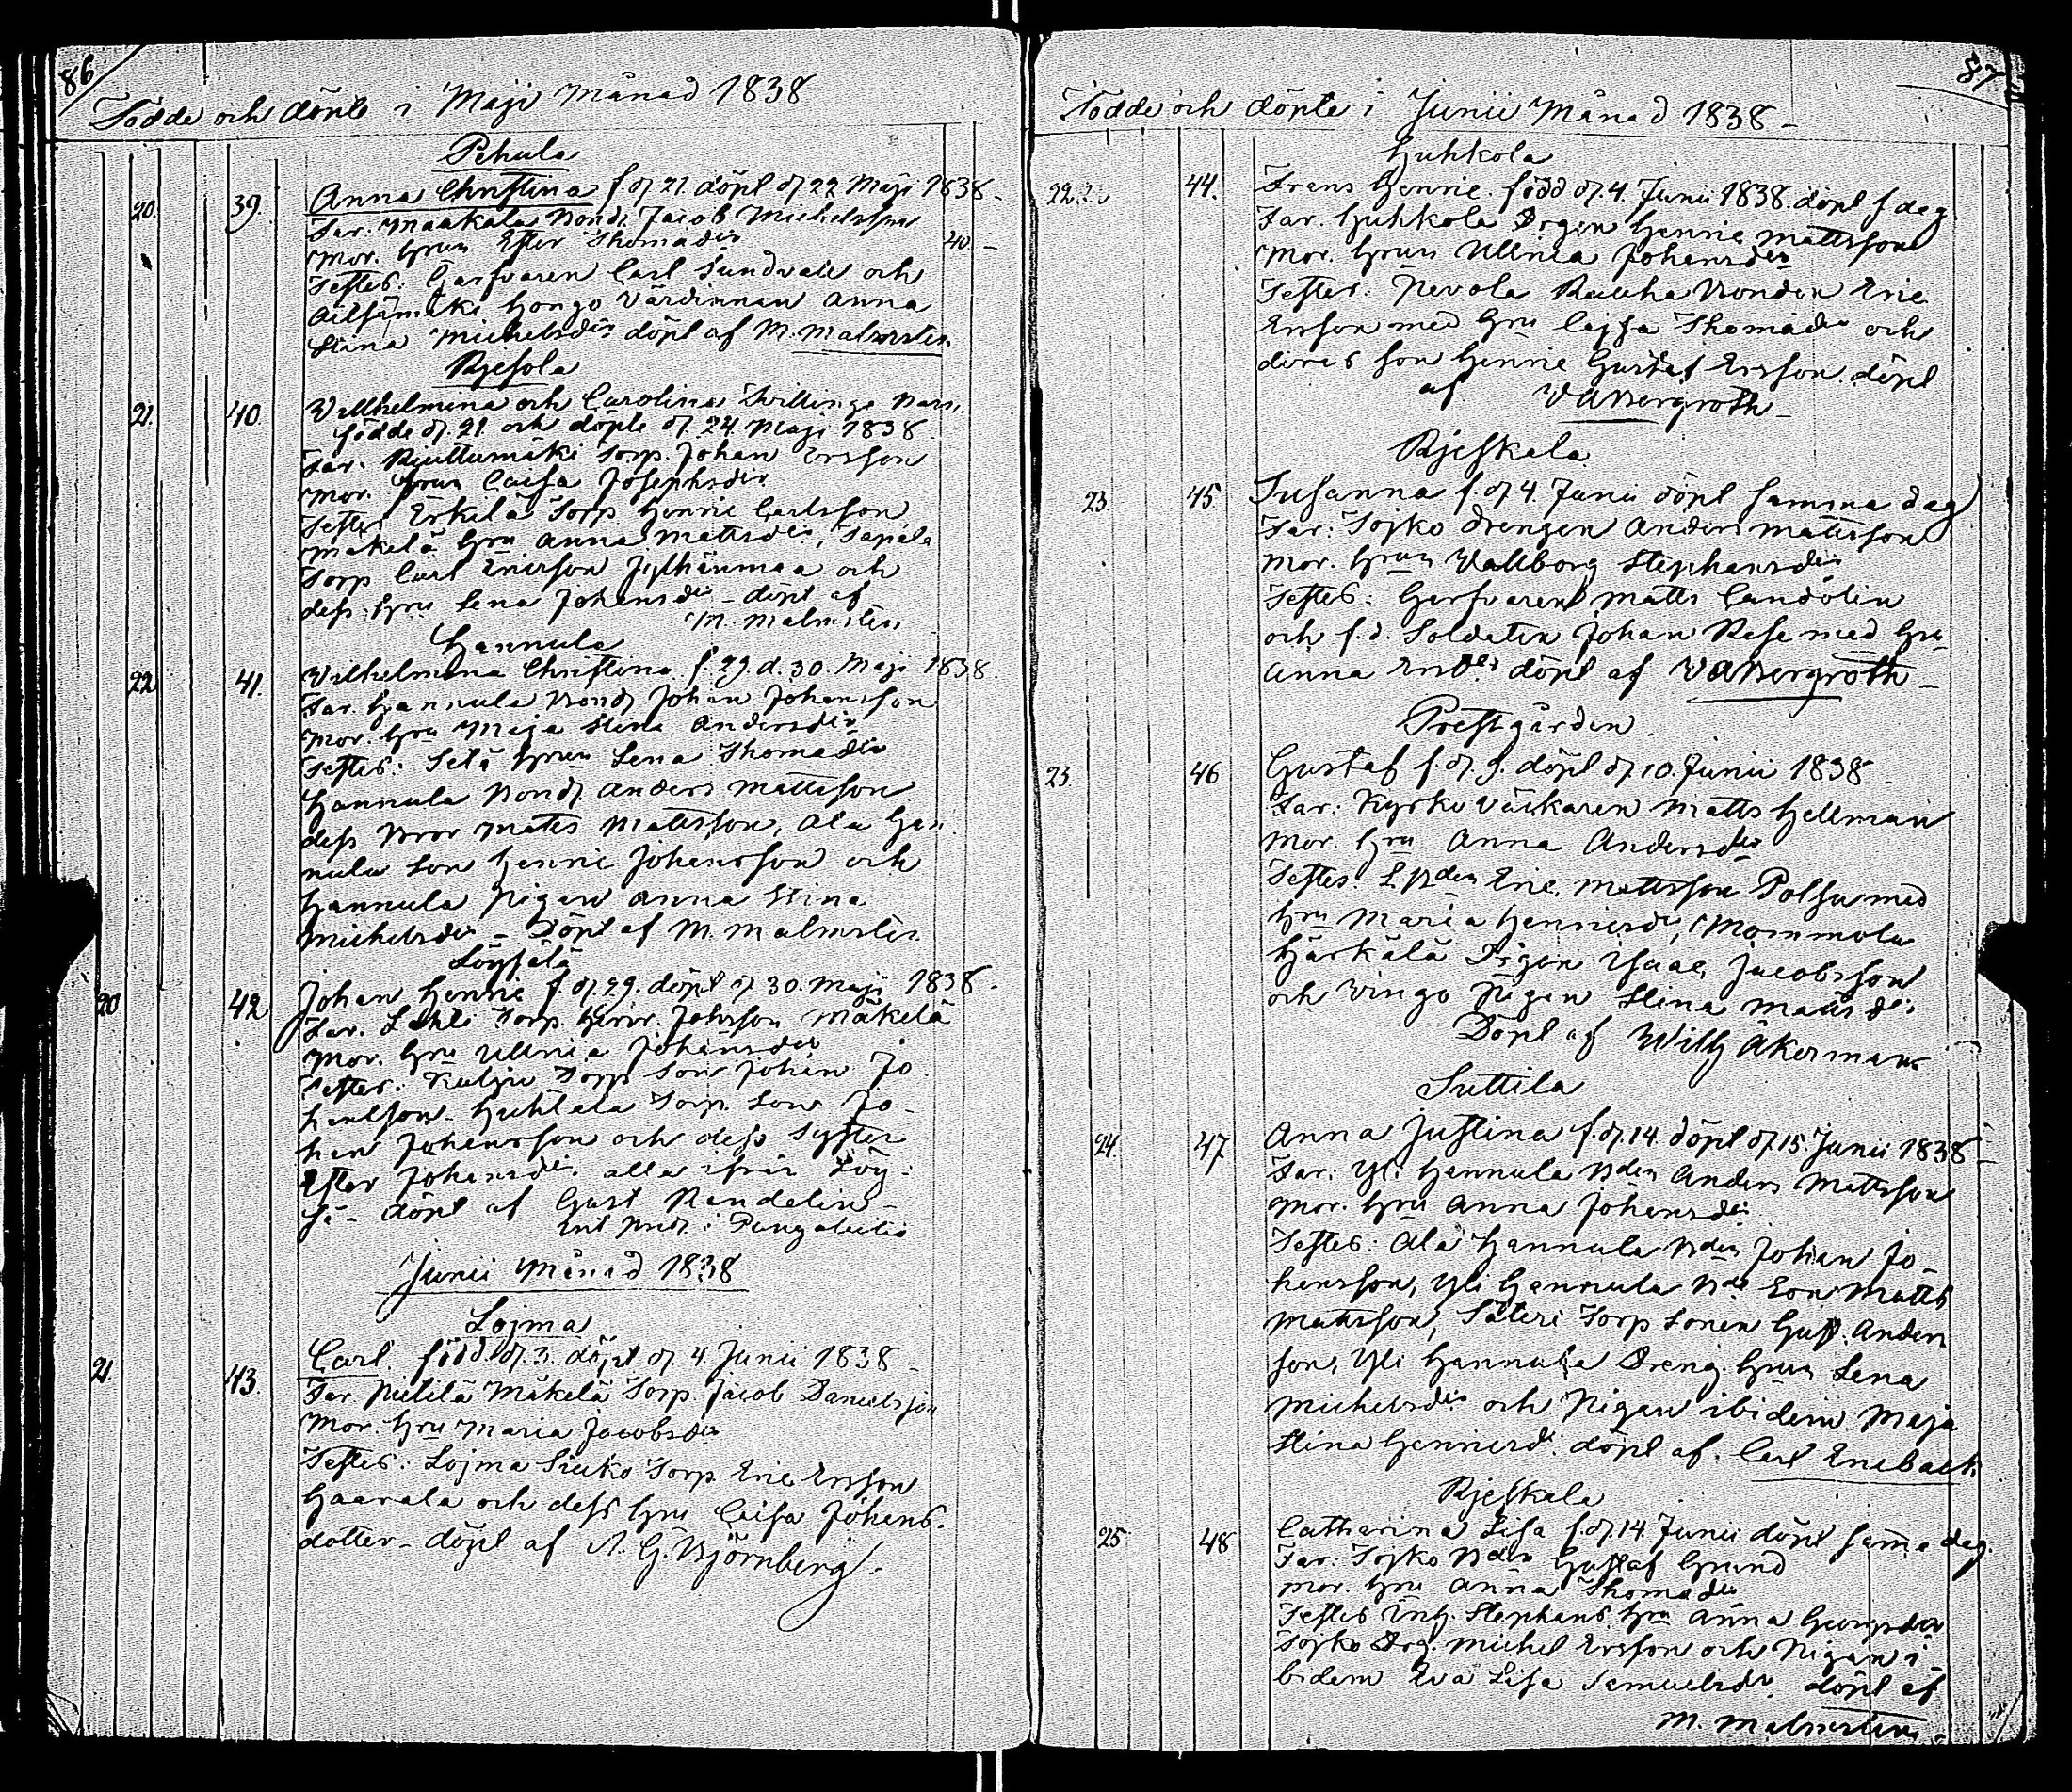 86
Födde och döpte i Maji Månad 1838
Pehula
20. 39. Anna Christina f. d. 21. döpt d. 22 Maji 1838 -
Far. Maakala Bond. Jacob Michelsson
Mor. hrun Ester Thomadtr 40. -
Testes: Garfvaren Carl Sundvall och
hongo Värdinnan Anna
Stina Michelsdtr döpt af M. Malmsten
Rjesola
21. 40. Villhelmina och Carolina Tvillinge Barn.
födde d. 21 och döpte d. 24 Maji 1838
Far: Torp. Johan Ersson
Mor. hrun Caisa Josephsdtr
Testes Erkilä Torp Henric Carlsson
Mäkelä hru Anna Mattsdtr, Tapala
Torp Carl Ericsson och
dess hru Lena Johansdtr - döpt af
M. Malmsten
Hannula
22 41. Vilhelmina Christina f. 29. d. 30. Maji 1838.
Far. Hannula Bond. Johan Johansson
Mor. hru Maja Stina Andersdtr
Testes: Setä hrun Lena Thomadtr
Hannula Bond. Anders Mattsson
dess Bror Matts Mattsson, Ala Han
nula Son Henric Johansson och
Hannula Pigan Anna Stina
Michelsdtr - Döpt af M. Malmsten
Löysälä
20 42 Johan Henric f. d. 29. döpt d. 30. Maji 1838.
Far. Torp. Johsson Mäkelä
Mor. hru Ullrica Johansdtr
Testes: Torp Son Johan Jo
hansson - Huhtala Torp. Son Jo-
han Johansson och dess Syster
Ester Johansdtr alla ifrån Löy-
sä - döpt af Gust Randelin
i Pungalaitio
Junii Månad 1838
Lojma
21. 43. Carl. född d. 3. döpt d. 4. Junii 1838 -
Far. Pietilä Mäkelä Torp. Jacob Danielsson
Mor. hru Maria Jacobsdtr
Testes: Lojma Torp Eric Ersson
Haarala och dess hru Caisa Johans-
dotter - döpt af A. G. Björnberg.
87
Födde och döpte i Junii Månad 1838 -
Huhkola
22. 44. Frans Henric. född d. 4. Junii 1838. döpt s dag
Far. Huhkola Drgen Henric Mattsson
Mor. hrun Ullrica Johansdtr
Testes: Bonden Eric
Ersson med hru Cajsa Thomadtr och
deras son Henric Gustaf Ersson. döpt
af V A Bergroth -
Rjeskala
23. 45. Susanna f. d. 4. Junii döpt samma dag
Far: Sojko Drengen Anders Mattsson
Mor. hrun Vallborg Stephansdtr
Testes: Garfvaren Matts Candolin
och f. d. Soldaten Johan Rese med hru
Anna Ersdtr döpt af V A Bergroth -
Prestgården
23. 46 Gustaf f. d. 9. döpt d. 10. Junii 1838 -
Far: Kyrko väckaren Matts Hellman
Mor. hru Anna Andersdtr
Testes: Eric Mattsson Polsu med
hru Maria Henricsdtr, Mommola
Härkälä Drgen Isaac Jacobsson
och Vingo Pigan Stina Mattsdtr
Döpt af Wilh Åkerman
Suttila
24. 47 Anna Justina f. d. 14. döpt d. 15. Junii 1838 -
Far: Yli Hannula Bden Anders Mattsson
Mor. hru Anna Johansdtr
Testes: Ala Hannula Bden Johan Jo-
hansson, Yli Hannula Bds Son Matts
Mattsson, Säteri Torp Sonen Gust. Anders
son, Yli Hannula Dreng. hrun Lena
Michelsdtr och Pigan ibidem Maja
Stina Henricsdr. döpt af. Carl Eneback
Rjeskala
25 48 Catharina Lisa f. d. 14. Junii döpt samma dag.
Far: Sojko Bden Gustaf Grund
Mor. hru Anna Thomadtr
Testes Stephans hru Anna Georgsdtr
Sojko Drg. Michel Ersson och Pigan i-
bidem Eva Lisa Samuelsdr. döpt af
M. Malmsten